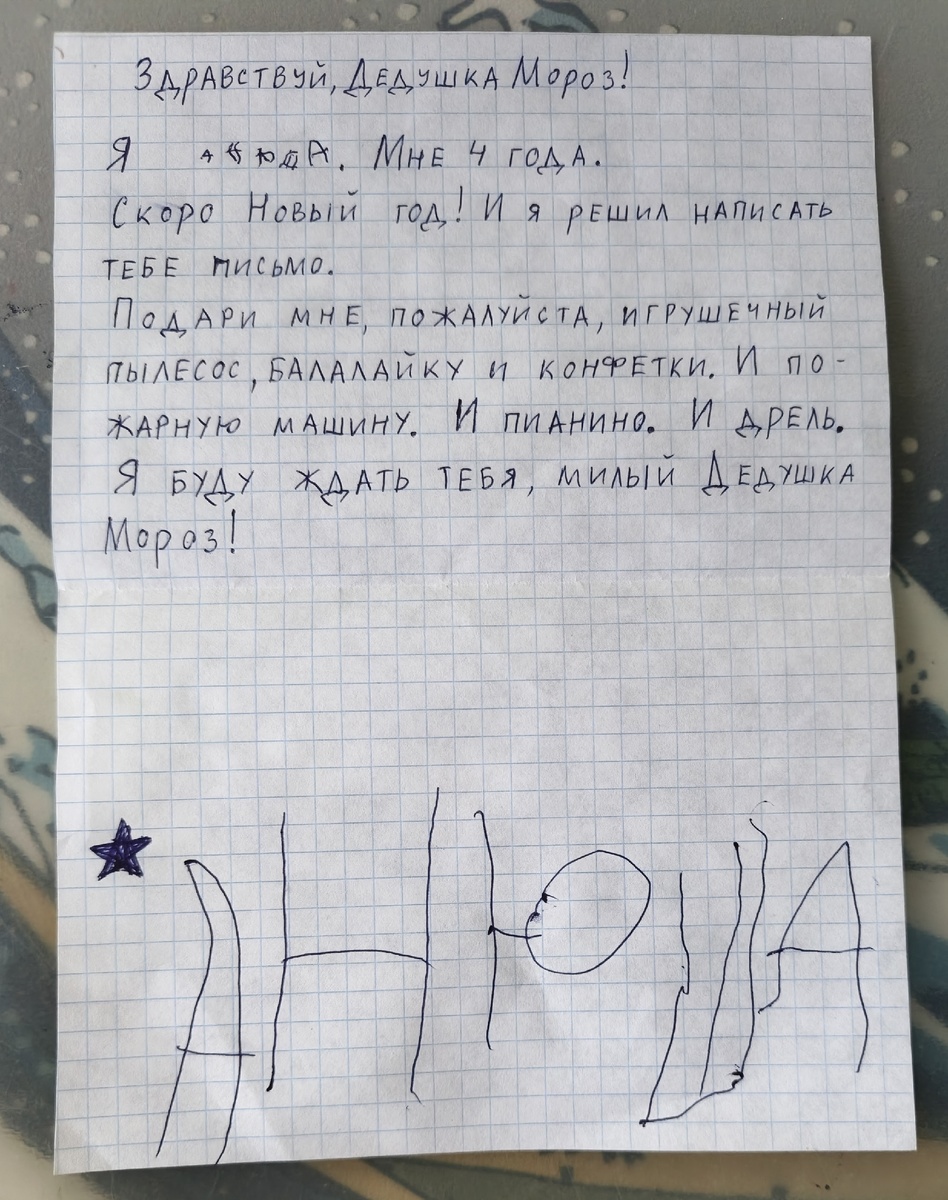 Здравствуй, Дедушка Мороз!
Я Анюта. Мне 4 года.
Скоро Новый год! И я решил написать
тебе письмо.
Подари мне, пожалуйста, игрушечный
пылесос, балалайку и конфетки. И по-
жарную машину. И пианино. И дрель.
Я буду ждать тебя, милый Дедушка
Мороз!